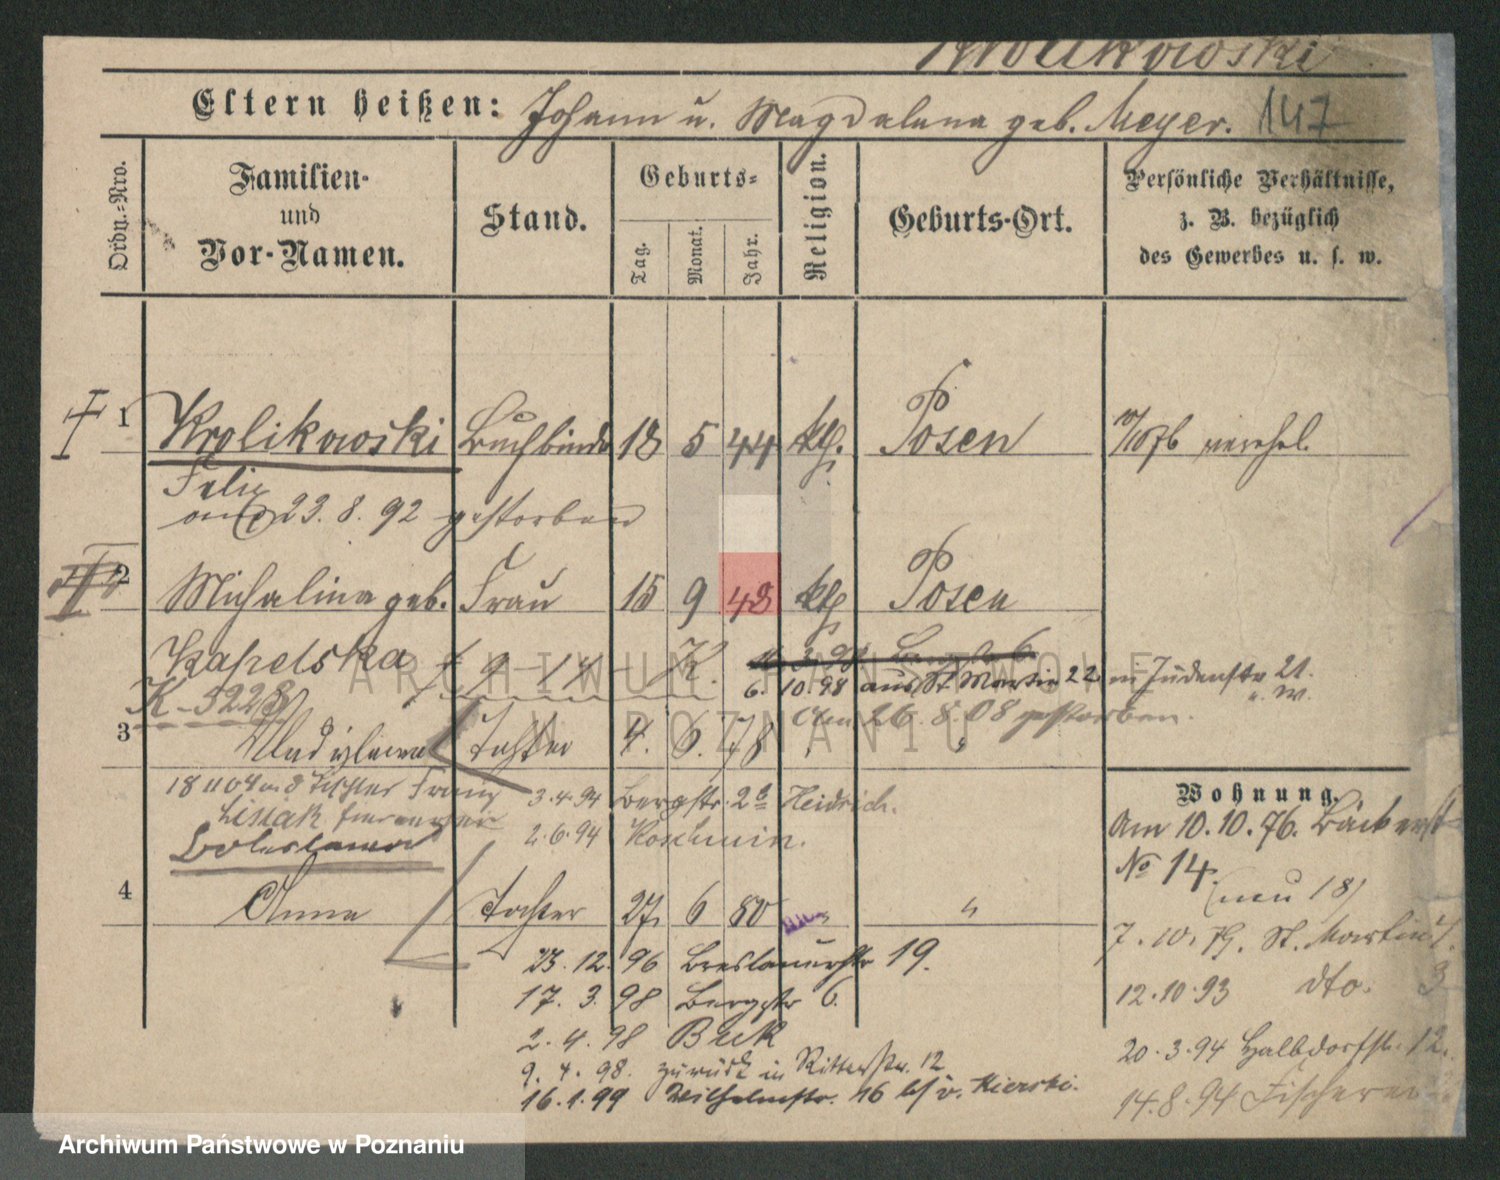 Krolikowski
Eltern heißen: Johann u. Magdalena geb. Meyer. 147
Ordn.-Nro.
Familien-
und
Vor-Namen.
Stand.
Geburts-
Tag.
Monat.
Jahr.
Religion.
Geburts-Ort.
Persönliche Verhältnisse,
z. B. bezüglich
des Gewerbes u. s. w.
I 1 Krolikowski Buchbinder 18 5 44 kth. Posen 10/1876 verehel.
Felix
am 23. 8. 92 gestorben
II 2 Michalina geb. Frau 15 9 48 kth Posen
Kapelska
6. 10.98 aus St Martin 22 in Judenstr 21.
K-5228
am 26. 8. 08 gestorben.
3 Wladislawa Tochter 4. 6. 78 "
3.4.94 Bergstr. 2a Heidrich.
2.6.94 Koschmin.
Boleslawa
4 Anna Tochter 27. 6 80 "
23. 12. 96 Breslauerstr 19.
17. 3. 98 Bergstr 6.
2. 4. 98 Buk
9. 4. 98. zurück in Ritterstr. 12
16.1.99 Wilhelmstr. 16 b/ v. Kierski.
Wohnung.
Am 10.10.76. Bäckerst
No 14.
(neu 18)
7.10.79. St. Martin
12.10.93 dto. 3
20.3.94 Halbdorfstr. 12.
14.8.94 Fischerei
ARCHIWUM PAŃSTWOWE
W POZNANIU
Archiwum Państwowe w Poznaniu